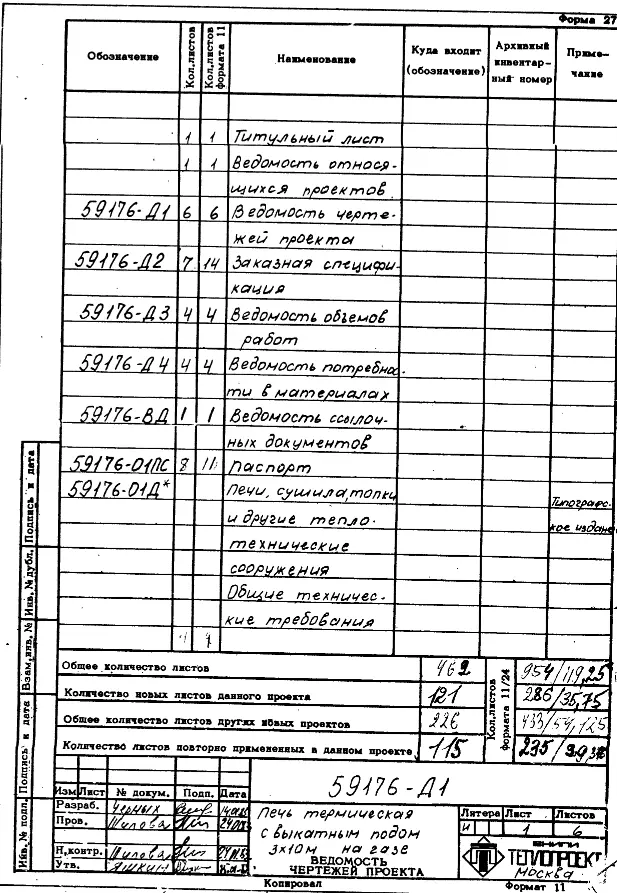 Форма 27
Обозначение Кол.листов Кол.листов формата 11 Наименование Куда входит (обозначение) Архивный инвентар- ный номер Приме- чание
1 1 Титульный лист
1 1 Ведомость относя-
щихся проектов
59176-Д1 6 6 Ведомость черте-
жей проекта
59176-Д2 7 14 Заказная специфи-
кация
59176-Д3 4 4 Ведомость объемов
работ
59176-Д4 4 4 Ведомость потребнос-
ти в материалах
59176-ВД 1 1 Ведомость ссылоч-
ных документов
59176-01ПС 8 11 Паспорт
59176-01Д* Печи, сушила, топки
и другие тепло- Типографс-
кое издание
технические
сооружения
Общие техничес-
кие требования
Общее количество листов 462 Кол.листов формата 11/24 954/119,25
Количество новых листов данного проекта 121 286/35,75
Общее количество листов других новых проектов 226 433/54,125
Количество листов повторно примененных в данном проекте 115 235/29,375
Инв. № подл. Подпись и дата Взам.инв. № Инв. № дубл. Подпись и дата
59176-Д1
Изм Лист № докум. Подп. Дата
Разраб. Черных
Пров. Шилова
Н.контр. Шилова
Утв.
Печь термическая
с выкатным подом
3х10м на газе
ВЕДОМОСТЬ
ЧЕРТЕЖЕЙ ПРОЕКТА
Литера Лист Листов
И 1 6
ВНИПИ
ТЕПЛОПРОЕКТ
Москва
Копировал Формат 11